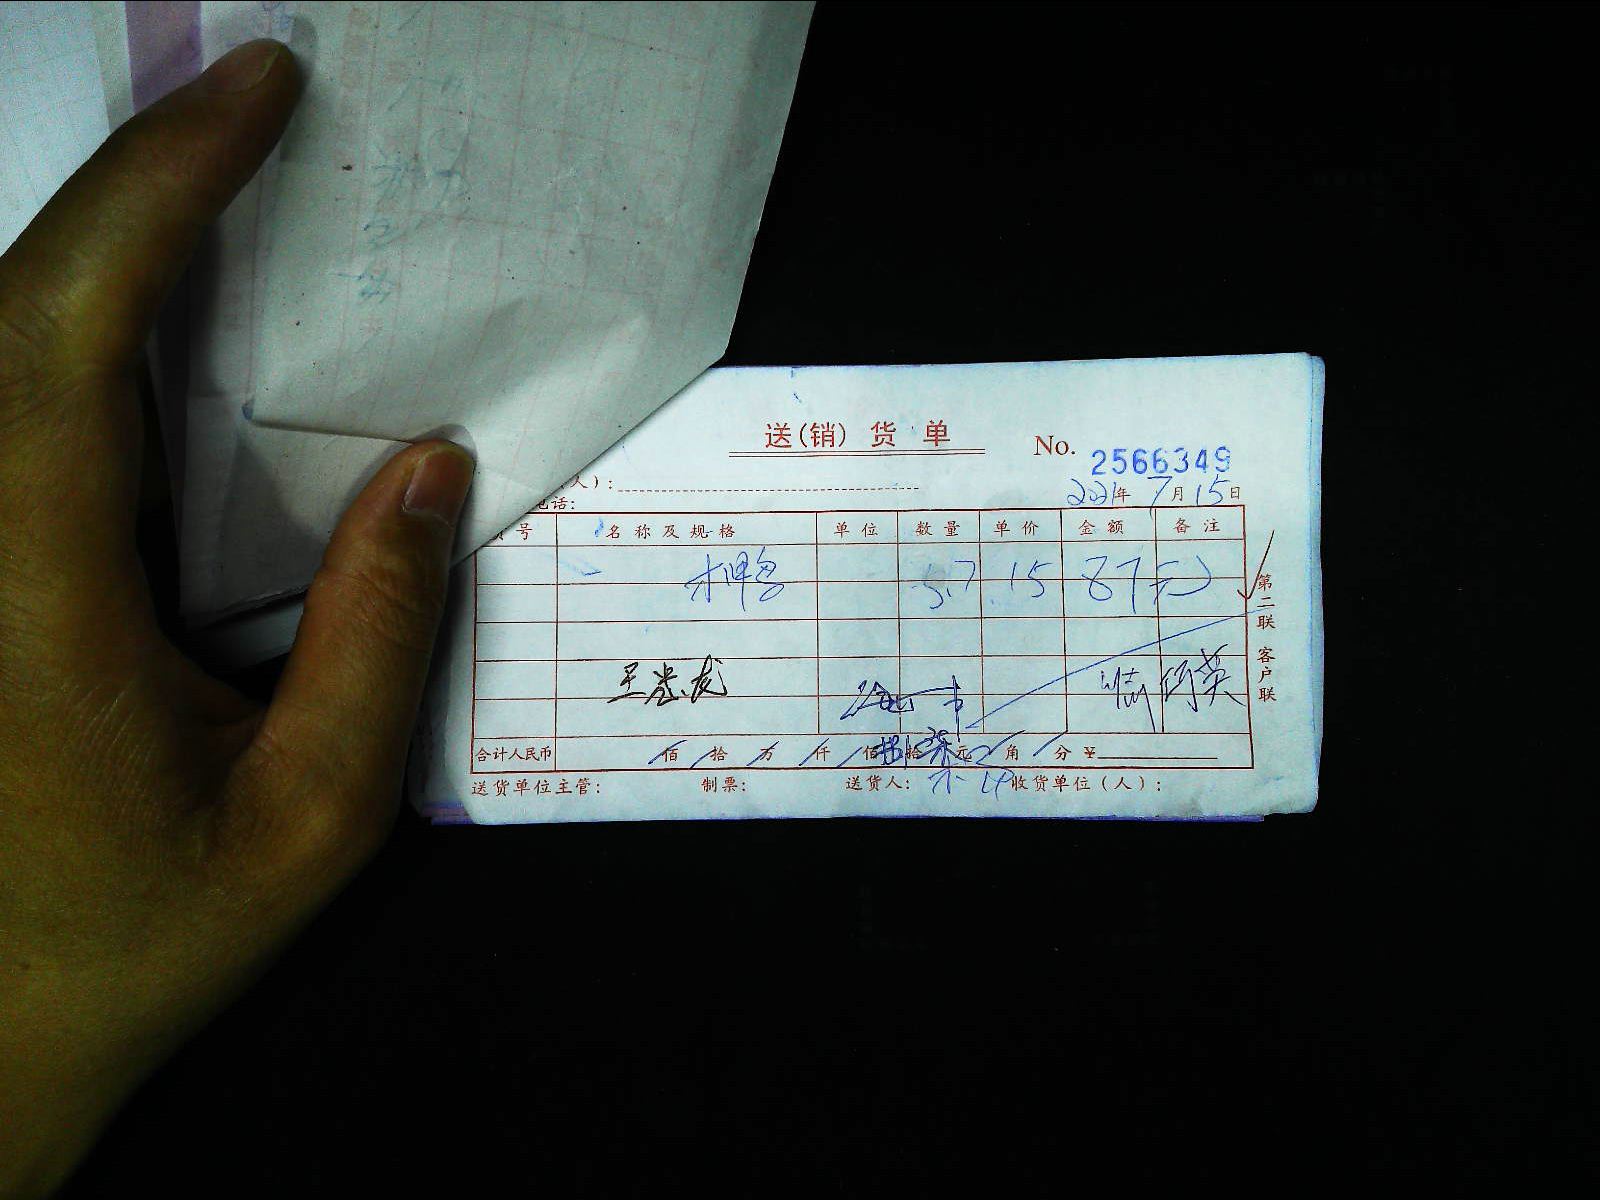 送(销)货单
No. 2566349
人):
电话:
2021年 7月 15日
号 名称及规格 单位 数量 单价 金额 备注
水鸭 5.7 15 87元
第二联 客户联
合计人民币 佰 拾 万 仟 佰 拾 柒 元 角 分 ¥
送货单位主管: 制票: 送货人: 收货单位(人):